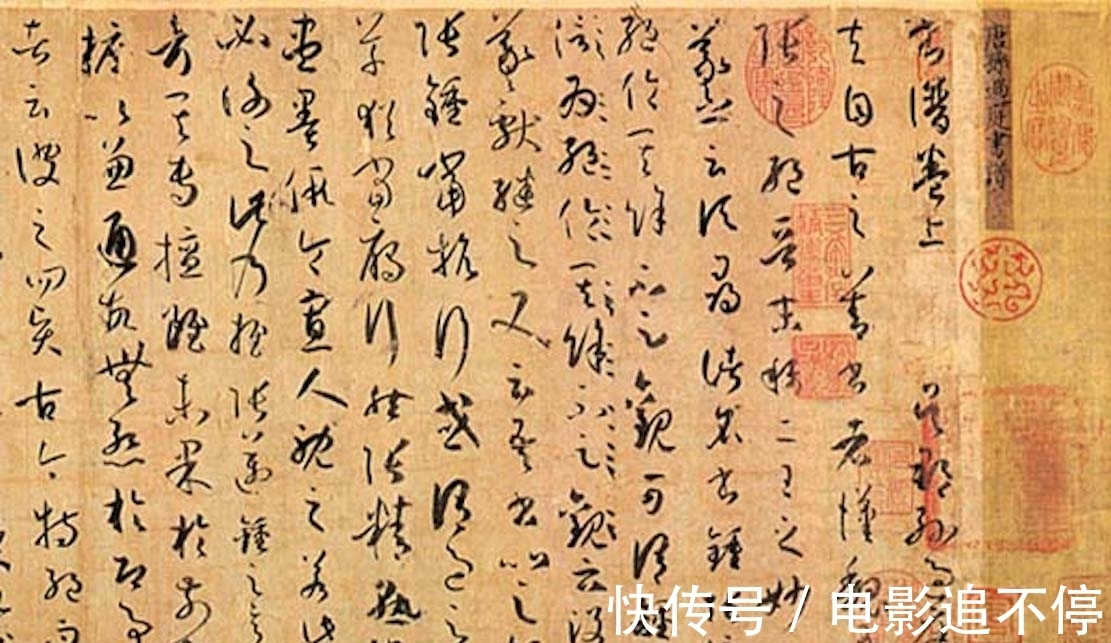 唐孫過庭書譜
書譜卷上 吳郡孫過
夫自古之善書者漢魏
張之絕晉末稱二王之妙
羲之云頃尋諸名書鍾
絕倫其餘不足觀可謂鍾
信為絕倫其餘不足觀云沒
羲獻繼之又云吾書比之
張鍾當抗行或謂過之
草猶當雁行然張精熟
盡墨假令寡人耽之若此
必謝之此乃推張邁鍾之意
考其專擅雖未果於前
摭以兼通故無慚於即事
者云彼之四賢古今特絕而
快传号 / 电影追不停